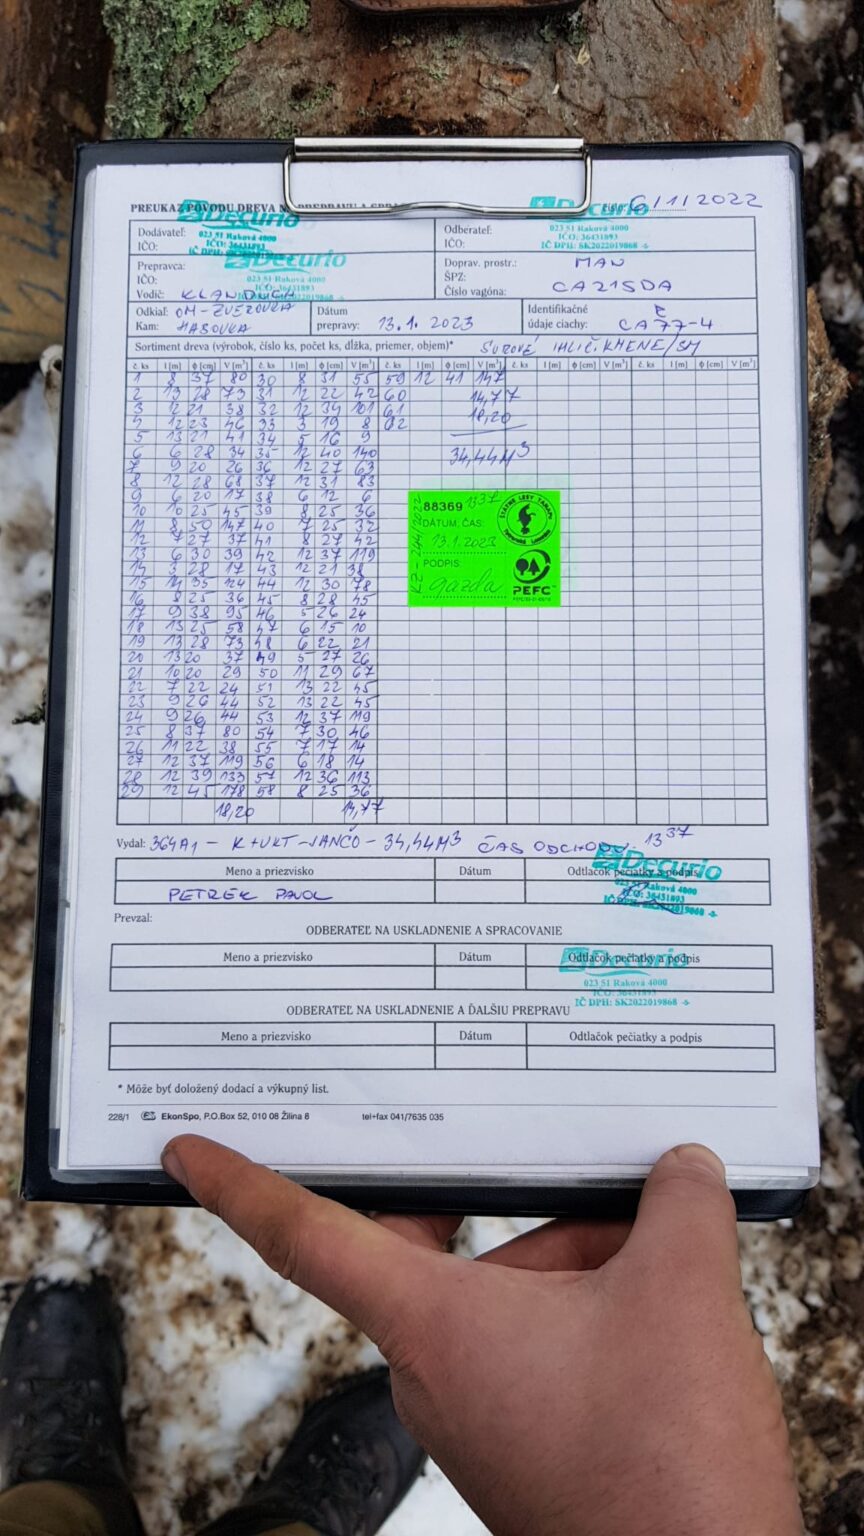 PREUKAZ PÔVODU DREVA NA PREPRAVU A číslo: 6/1/2022
Decurio
023 51 Raková 4000
IČO: 36431893
IČ DPH: SK2022019868
Dodávateľ:
IČO:
Odberateľ:
IČO:
Decurio
023 51 Raková 4000
IČO: 36431893
IČ DPH: SK2022019868
Prepravca:
IČO:
Vodič:
Decurio
023 51 Raková 4000
Doprav. prostr.: MAN
ŠPZ:
Číslo vagóna: CA215DA
Odkiaľ: OM-ZVEROVKA
Kam: HABOVKA
Dátum
prepravy: 13.1. 2023
Identifikačné
údaje ciachy: E
CA77-4
Sortiment dreva (výrobok, číslo ks, počet ks, dĺžka, priemer, objem)* SUROVÉ IHLIČ. KMENE/SM
č. ks l [m] ϕ [cm] V [m³] č. ks l [m] ϕ [cm] V [m³] č. ks l [m] ϕ [cm] V [m³] č. ks l [m] ϕ [cm] V [m³] č. ks l [m] ϕ [cm] V [m³]
1 8 37 80 30 8 31 55 59 12 41 147
2 13 28 73 31 12 22 42 60 14,77
3 12 21 38 32 12 34 101 61 18,20
4 12 23 46 33 3 19 8 62
5 13 21 41 34 5 16 9
6 6 28 34 35 12 40 140 34,44M3
7 9 20 26 36 12 27 63
8 12 28 68 37 12 31 83
9 6 20 17 38 6 12 6
10 10 25 45 39 8 25 36
11 8 50 147 40 7 25 32
12 7 27 37 41 8 27 42
13 6 30 39 42 12 37 119
14 3 28 17 43 12 21 38
15 14 35 124 44 12 30 78
16 8 25 36 45 8 28 45
17 9 38 95 46 5 26 24
18 13 25 58 47 6 15 10
19 13 28 73 48 6 22 21
20 13 20 37 49 5 27 26
21 10 20 29 50 11 29 67
22 7 22 24 51 13 22 45
23 9 26 44 52 13 22 45
24 9 26 44 53 12 37 119
25 8 37 80 54 7 30 46
26 11 22 38 55 7 17 14
27 12 37 119 56 6 18 14
28 12 39 133 57 12 36 113
29 12 45 178 58 8 25 36
18,20 14,77
88369 1337
DÁTUM, ČAS:
13.1.2023
PODPIS:
gazda
ŠTÁTNE LESY TANAPU
PEFC
Vydal: 364A1 - K+UKT-JANČO - 34,44M3 ČAS ODCHODU: 13 37
Meno a priezvisko Dátum Odtlačok pečiatky a podpis
PETREK PAVOL
Decurio
023 51 Raková 4000
IČO: 36431893
Prevzal:
ODBERATEĽ NA USKLADNENIE A SPRACOVANIE
Meno a priezvisko Dátum Odtlačok pečiatky a podpis
Decurio
023 51 Raková 4000
IČO: 36431893
IČ DPH: SK2022019868
ODBERATEĽ NA USKLADNENIE A ĎALŠIU PREPRAVU
Meno a priezvisko Dátum Odtlačok pečiatky a podpis
* Môže byť doložený dodací a výkupný list.
228/1 EkonSpo, P.O.Box 52, 010 08 Žilina 8 tel+fax 041/7635 035